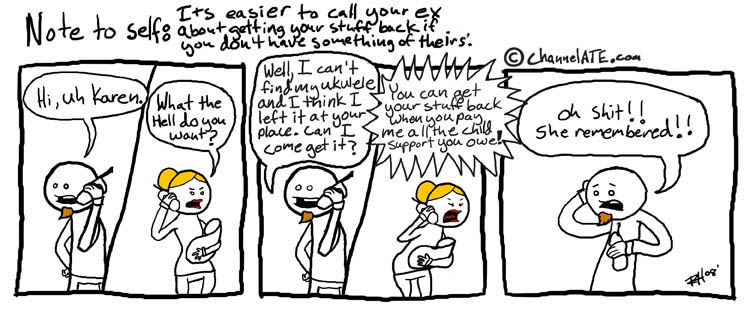 Note to self:
It's easier to call your ex
about getting your stuff back if
you don't have something of theirs.
© ChannelATE.com
Hi, uh Karen.
What the
Hell do you
want?
Well, I can't
find my ukulele
and I think I
left it at your
place. Can I
come get it?
You can get
your stuff back
when you pay
me all the child
support you owe!
Oh shit!!
She remembered!!